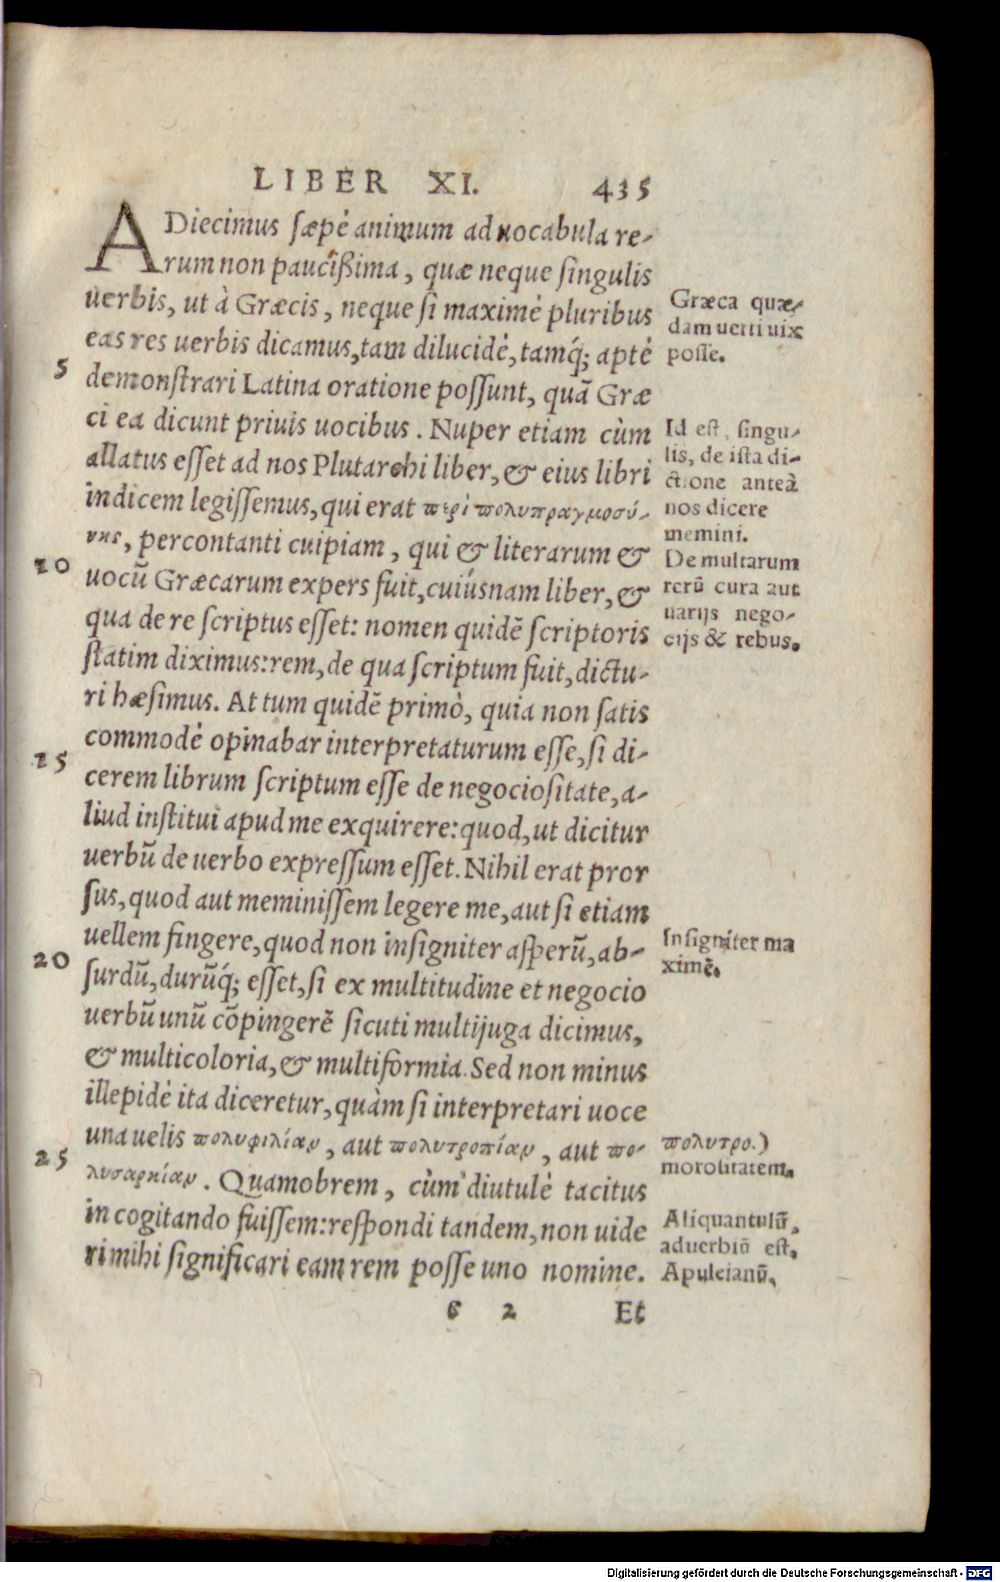 LIBER XI. 435
ADiecimus sæpè animum ad uocabula re-
rum non pauciſsima, quæ neque ſingulis
uerbis, ut à Græcis, neque ſi maximè pluribus
eas res uerbis dicamus, tam dilucidè, tamq́; aptè
5
demonſtrari Latina oratione poſſunt, quã Græ
ci ea dicunt priuis uocibus. Nuper etiam cùm
allatus eſſet ad nos Plutarchi liber, & eius libri
indicem legiſſemus, qui erat περὶ πολυπραγμοσύ-
νης, percontanti cuipiam, qui & literarum &
10
uocũ Græcarum expers fuit, cuiúsnam liber, &
qua de re ſcriptus eſſet: nomen quidẽ ſcriptoris
ſtatim diximus: rem, de qua ſcriptum fuit, dictu-
ri hæſimus. At tum quidẽ primò, quia non ſatis
commodè opinabar interpretaturum eſſe, ſi di-
15
cerem librum ſcriptum eſſe de negocioſitate, a-
liud inſtitui apud me exquirere: quod, ut dicitur
uerbũ de uerbo expreſſum eſſet. Nihil erat pror
ſus, quod aut meminiſſem legere me, aut ſi etiam
uellem fingere, quod non inſigniter aſperũ, ab-
20
ſurdũ, durũq́; eſſet, ſi ex multitudine et negocio
uerbũ unũ cõpingerẽ ſicuti multijuga dicimus,
& multicoloria, & multiformia. Sed non minus
illepidè ita diceretur, quàm ſi interpretari uoce
una uelis πολυφιλίαν, aut πολυτροπίαν, aut πο-
25
λυσαρκίαν. Quamobrem, cùm diutulè tacitus
in cogitando fuiſſem: reſpondi tandem, non uide
ri mihi ſignificari eam rem poſſe uno nomine.
e 2 Et
Græca quæ-
dam uerti uix
poſſe.
Id eſt, ſingu-
lis, de iſta di-
ctione anteà
nos dicere
memini.
De multarum
rerũ cura aut
uarijs nego-
cijs & rebus.
Inſigniter ma
ximè.
πολυτρο.)
moroſitatem.
Aliquantulũ,
aduerbiũ eſt,
Apuleianũ.
Digitalisierung gefördert durch die Deutsche Forschungsgemeinschaft - DFG